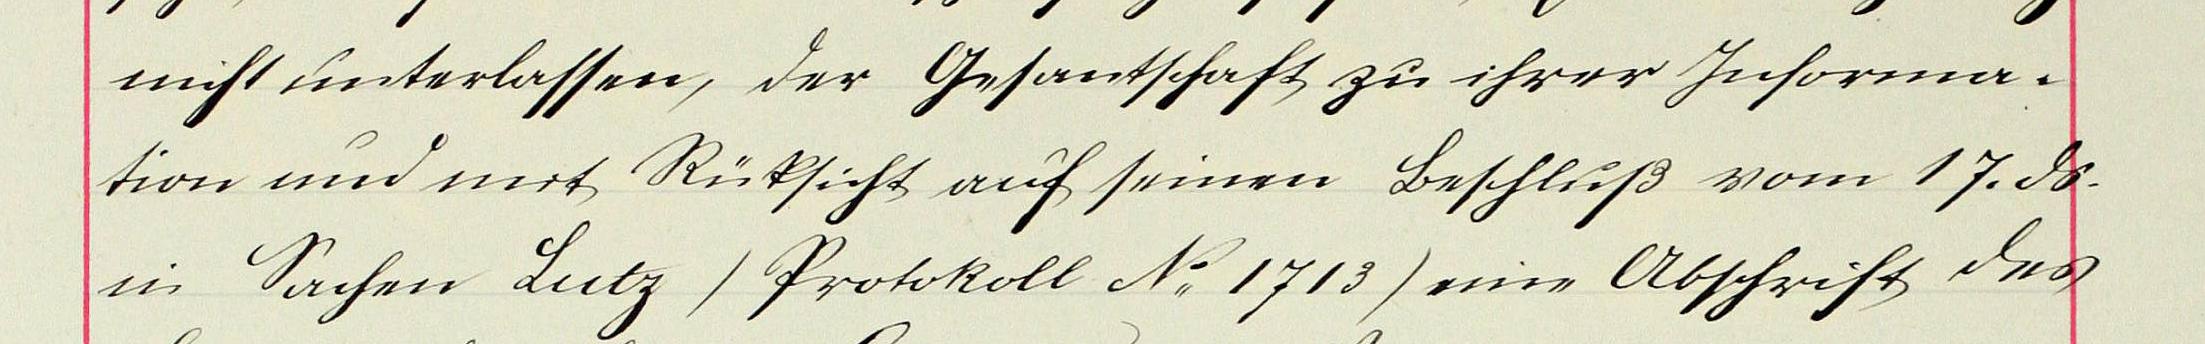 nicht unterlassen, der Gesantschaft zu ihrer Informa-
tion und mit Rüksicht auf seinen Beschluß vom 17. ds.
in Sachen Lutz (Protokoll No 1713) eine Abschrift des